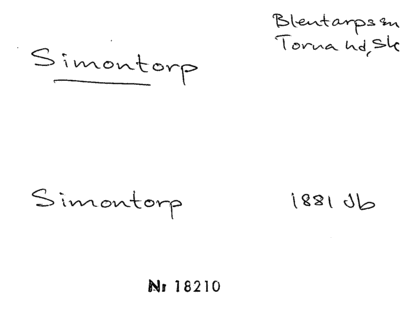 Simontorp
Blentarps sn
Torna hd, Sk
Simontorp
1881 Jb
Nr 18210